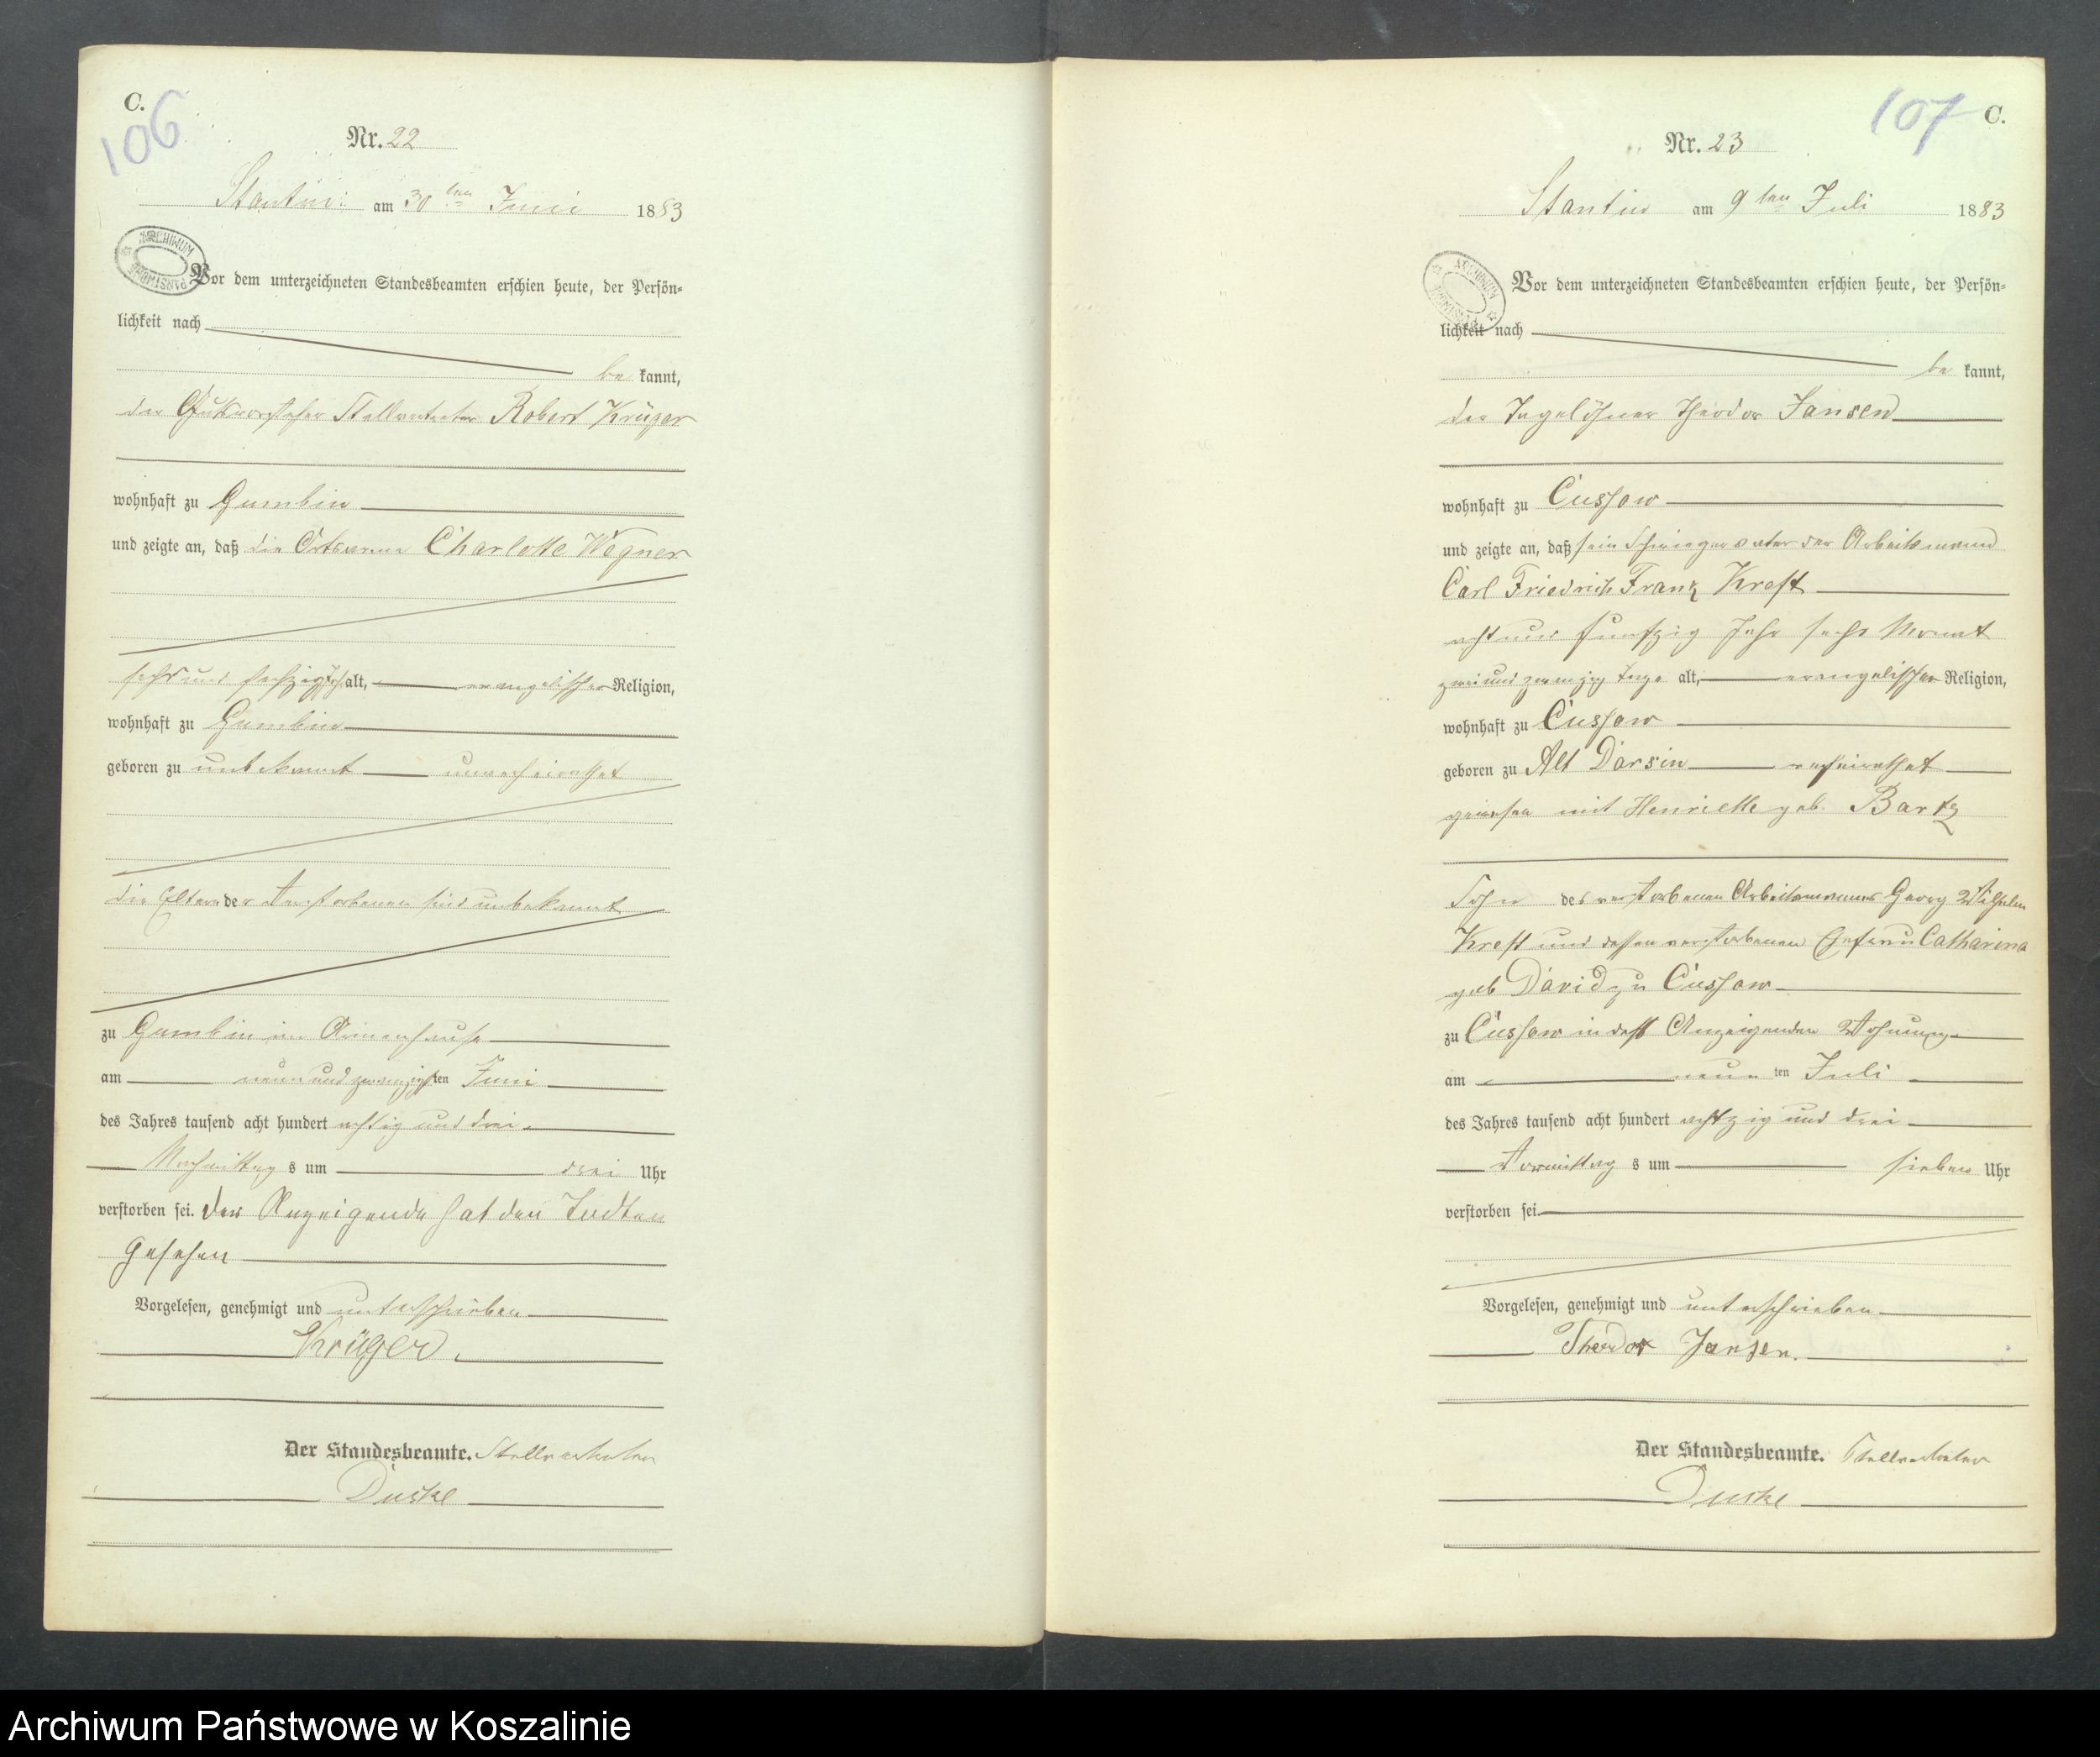 C.
106
Nr. 22
Stantin am 30ten Juni 1883
ARCHIWUM PAŃSTWOWE
Vor dem unterzeichneten Standesbeamten erschien heute, der Persön-
lichkeit nach
be kannt,
der Gutsvorsteher Stellvertreter Robert Krüger
wohnhaft zu Gumbin
und zeigte an, daß die Ortsarme Charlotte Wegner
sechs und sechzig Jahr alt, evangelischer Religion,
wohnhaft zu Gumbin
geboren zu unbekannt unverheirathet
die Eltern der Verstorbenen sind unbekannt
zu Gumbin im Armenhause
am neun und zwanzigsten Juni
des Jahres tausend acht hundert achtzig und drei
Nachmittag s um drei Uhr
verstorben sei. Der Anzeigende hat den Todten
Gesehen
Vorgelesen, genehmigt und unterschrieben
Krüger.
Der Standesbeamte. Stellvertreter
Duske
107
C.
Nr. 23
Stantin am 9ten Juli 1883
ARCHIWUM PAŃSTWOWE
Vor dem unterzeichneten Standesbeamten erschien heute, der Persön-
lichkeit nach
be kannt,
der Tagelöhner Theodor Jansen
wohnhaft zu Cussow
und zeigte an, daß sein Schwiegervater der Arbeitsmann
Carl Friedrich Franz Kreft
acht und funfzig Jahr sechs Monat
zwei und zwanzig Tage alt, evangelischer Religion,
wohnhaft zu Cussow
geboren zu Alt Darsin verheirathet
gewesen mit Henriette geb. Bartz
Sohn des verstorbenen Arbeitsmannes Georg Wilhelm
Kreft und dessen verstorbenen Ehefrau Catharina
geb David zu Cussow
zu Cussow in des Anzeigenden Wohnung
am neun ten Juli
des Jahres tausend acht hundert achtzig und drei
Vormittag s um sieben Uhr
verstorben sei.
Vorgelesen, genehmigt und unterschrieben
Theodor Jansen.
Der Standesbeamte. Stellvertreter
Duske
Archiwum Państwowe w Koszalinie